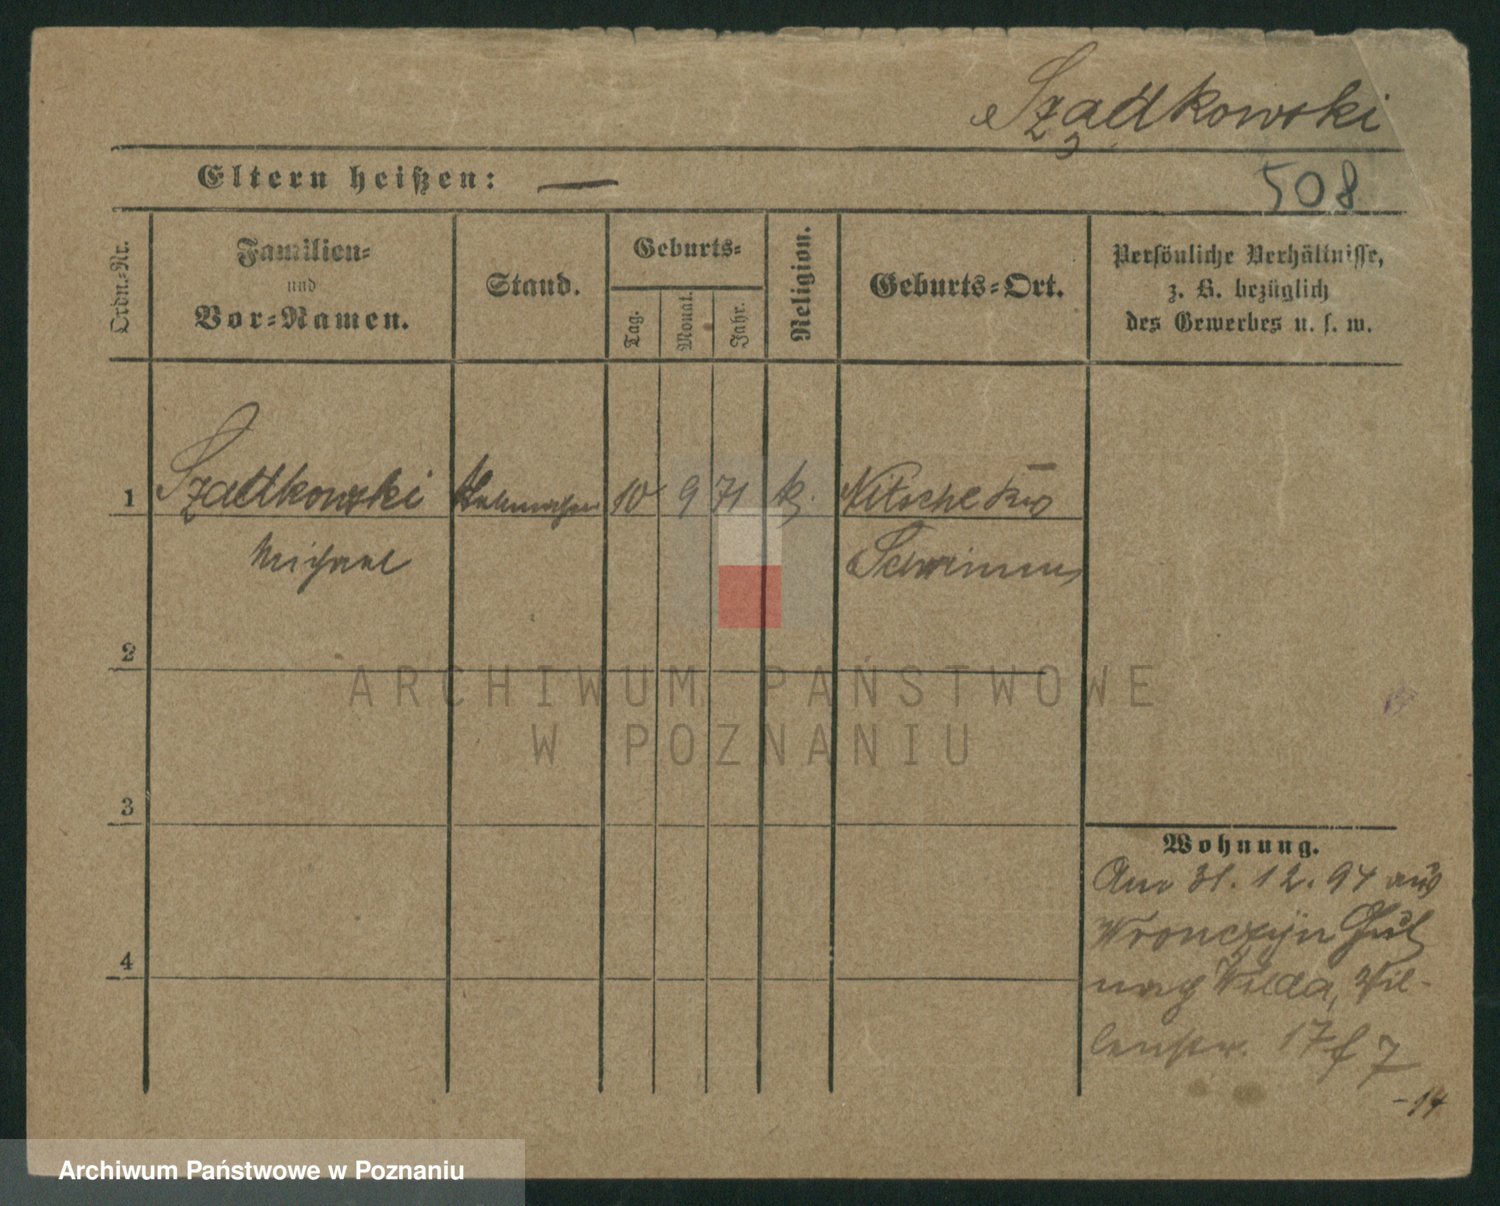 Szadkowski
Eltern heißen: —
508
Ordn.-Nr.
Familien-
und
Vor-Namen.
Stand.
Geburts-
Tag.
Monat.
Jahr.
Religion.
Geburts-Ort.
Persönliche Verhältnisse,
z. B. bezüglich
des Gewerbes u. s. w.
1 Szadkowski 10 9 71 k.
Michael
2
ARCHIWUM PAŃSTWOWE
W POZNANIU
3
Wohnung.
Am 31. 12. 94 aus
4
Wronczyn Gut
nach Wilda, Vil-
lenstr. 17 f 7
-14
Archiwum Państwowe w Poznaniu